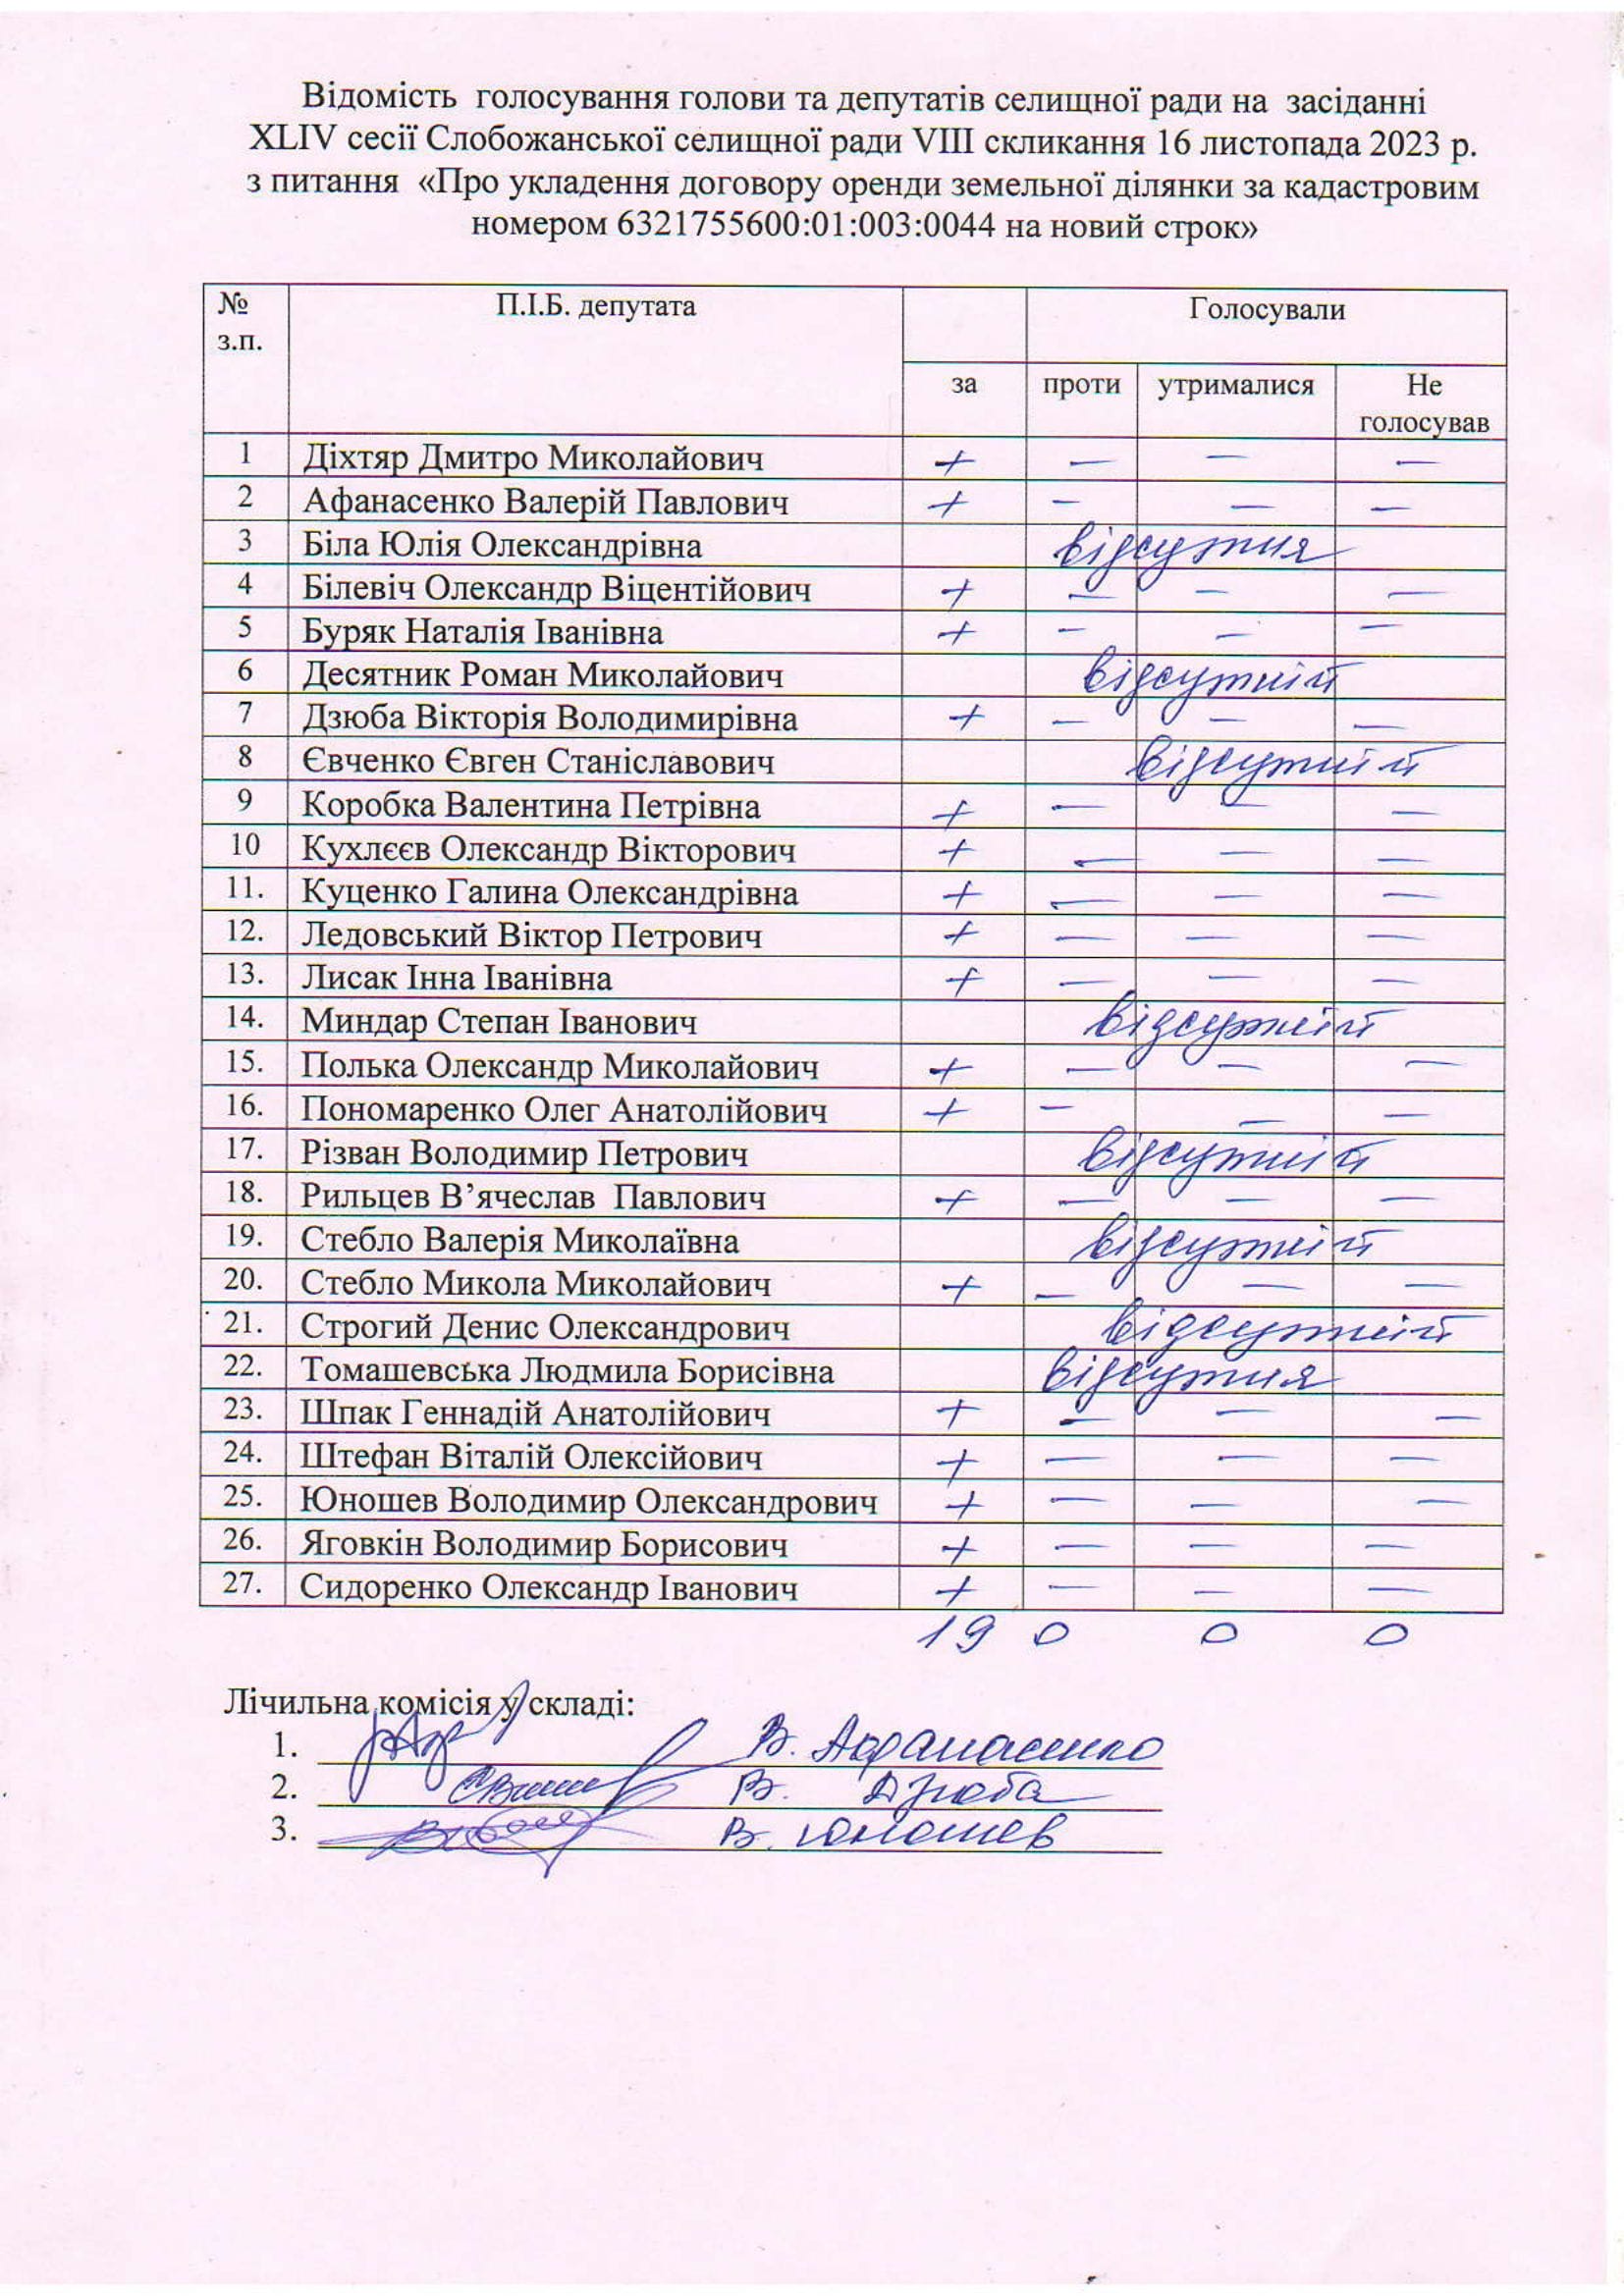 Відомість голосування голови та депутатів селищної ради на засіданні
XLIV сесії Слобожанської селищної ради VIII скликання 16 листопада 2023 р.
з питання «Про укладення договору оренди земельної ділянки за кадастровим
номером 6321755600:01:003:0044 на новий строк»
№ з.п. П.І.Б. депутата Голосували
за проти утрималися Не голосував
1 Діхтяр Дмитро Миколайович + — — —
2 Афанасенко Валерій Павлович + — — —
3 Біла Юлія Олександрівна відсутня
4 Білевіч Олександр Віцентійович + — — —
5 Буряк Наталія Іванівна + — — —
6 Десятник Роман Миколайович відсутній
7 Дзюба Вікторія Володимирівна + — — —
8 Євченко Євген Станіславович відсутній
9 Коробка Валентина Петрівна + — — —
10 Кухлєєв Олександр Вікторович + — — —
11. Куценко Галина Олександрівна + — — —
12. Ледовський Віктор Петрович + — — —
13. Лисак Інна Іванівна + — — —
14. Миндар Степан Іванович відсутній
15. Полька Олександр Миколайович + — — —
16. Пономаренко Олег Анатолійович + — — —
17. Різван Володимир Петрович відсутній
18. Рильцев В’ячеслав Павлович + — — —
19. Стебло Валерія Миколаївна відсутній
20. Стебло Микола Миколайович + — — —
21. Строгий Денис Олександрович відсутній
22. Томашевська Людмила Борисівна відсутня
23. Шпак Геннадій Анатолійович + — — —
24. Штефан Віталій Олексійович + — — —
25. Юношев Володимир Олександрович + — — —
26. Яговкін Володимир Борисович + — — —
27. Сидоренко Олександр Іванович + — — —
19 0 0 0
Лічильна комісія у складі:
1. В. Афанасенко
2. В. Дзюба
3. В. Юношев